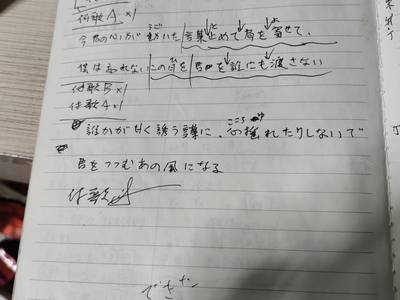 A ×1
今君の心が 動いた 言葉止めて 肩を寄せて、
僕は忘れない この日を 君を誰にも渡さない
B ×1
A ×1
誰かが甘く誘う言葉に、心こころ揺れたりしないで
君をつつむあの風になる